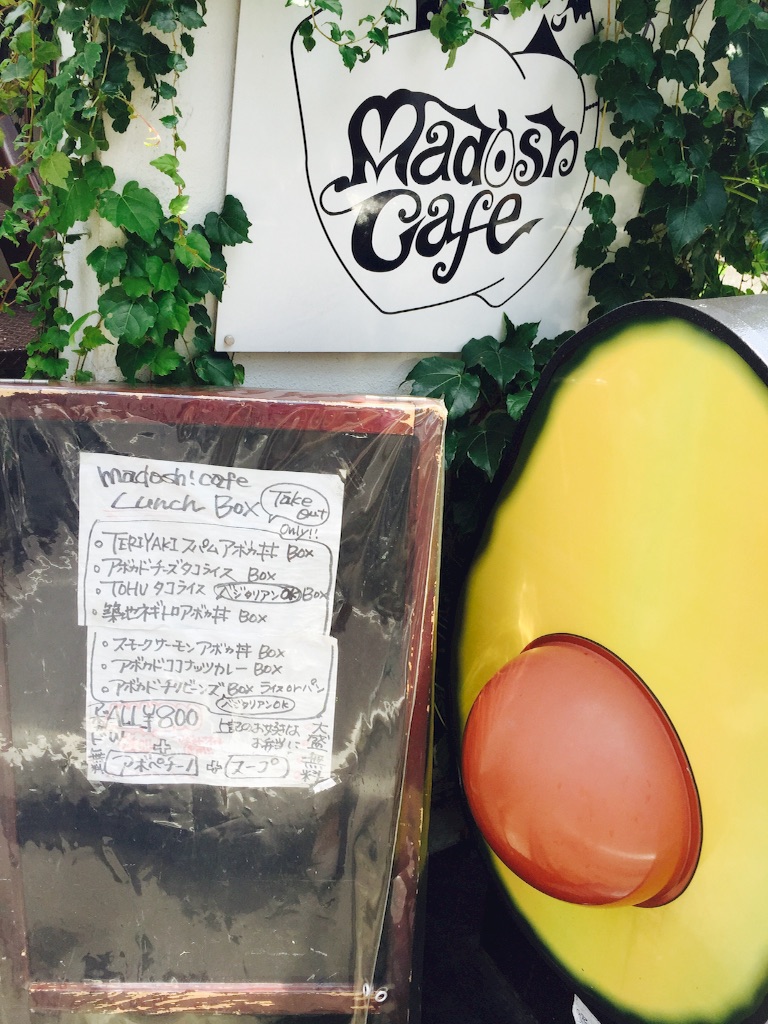 Madosh
Cafe
madosh! cafe
Lunch Box
Take
out
only!!
• TERIYAKI スパム アボカ丼 Box
• アボカドチーズタコライス Box
• TOHU タコライス ベジタリアンOK Box
• 築地ネギトロアボカ丼 Box
• スモークサーモンアボカ丼 Box
• アボカドココナッツカレー Box
• アボカドチリビーンズ Box ライス or パン
ベジタリアンOK
ALL ¥800
お好きな
お弁当に
大盛無料
アボペチーノ + スープ